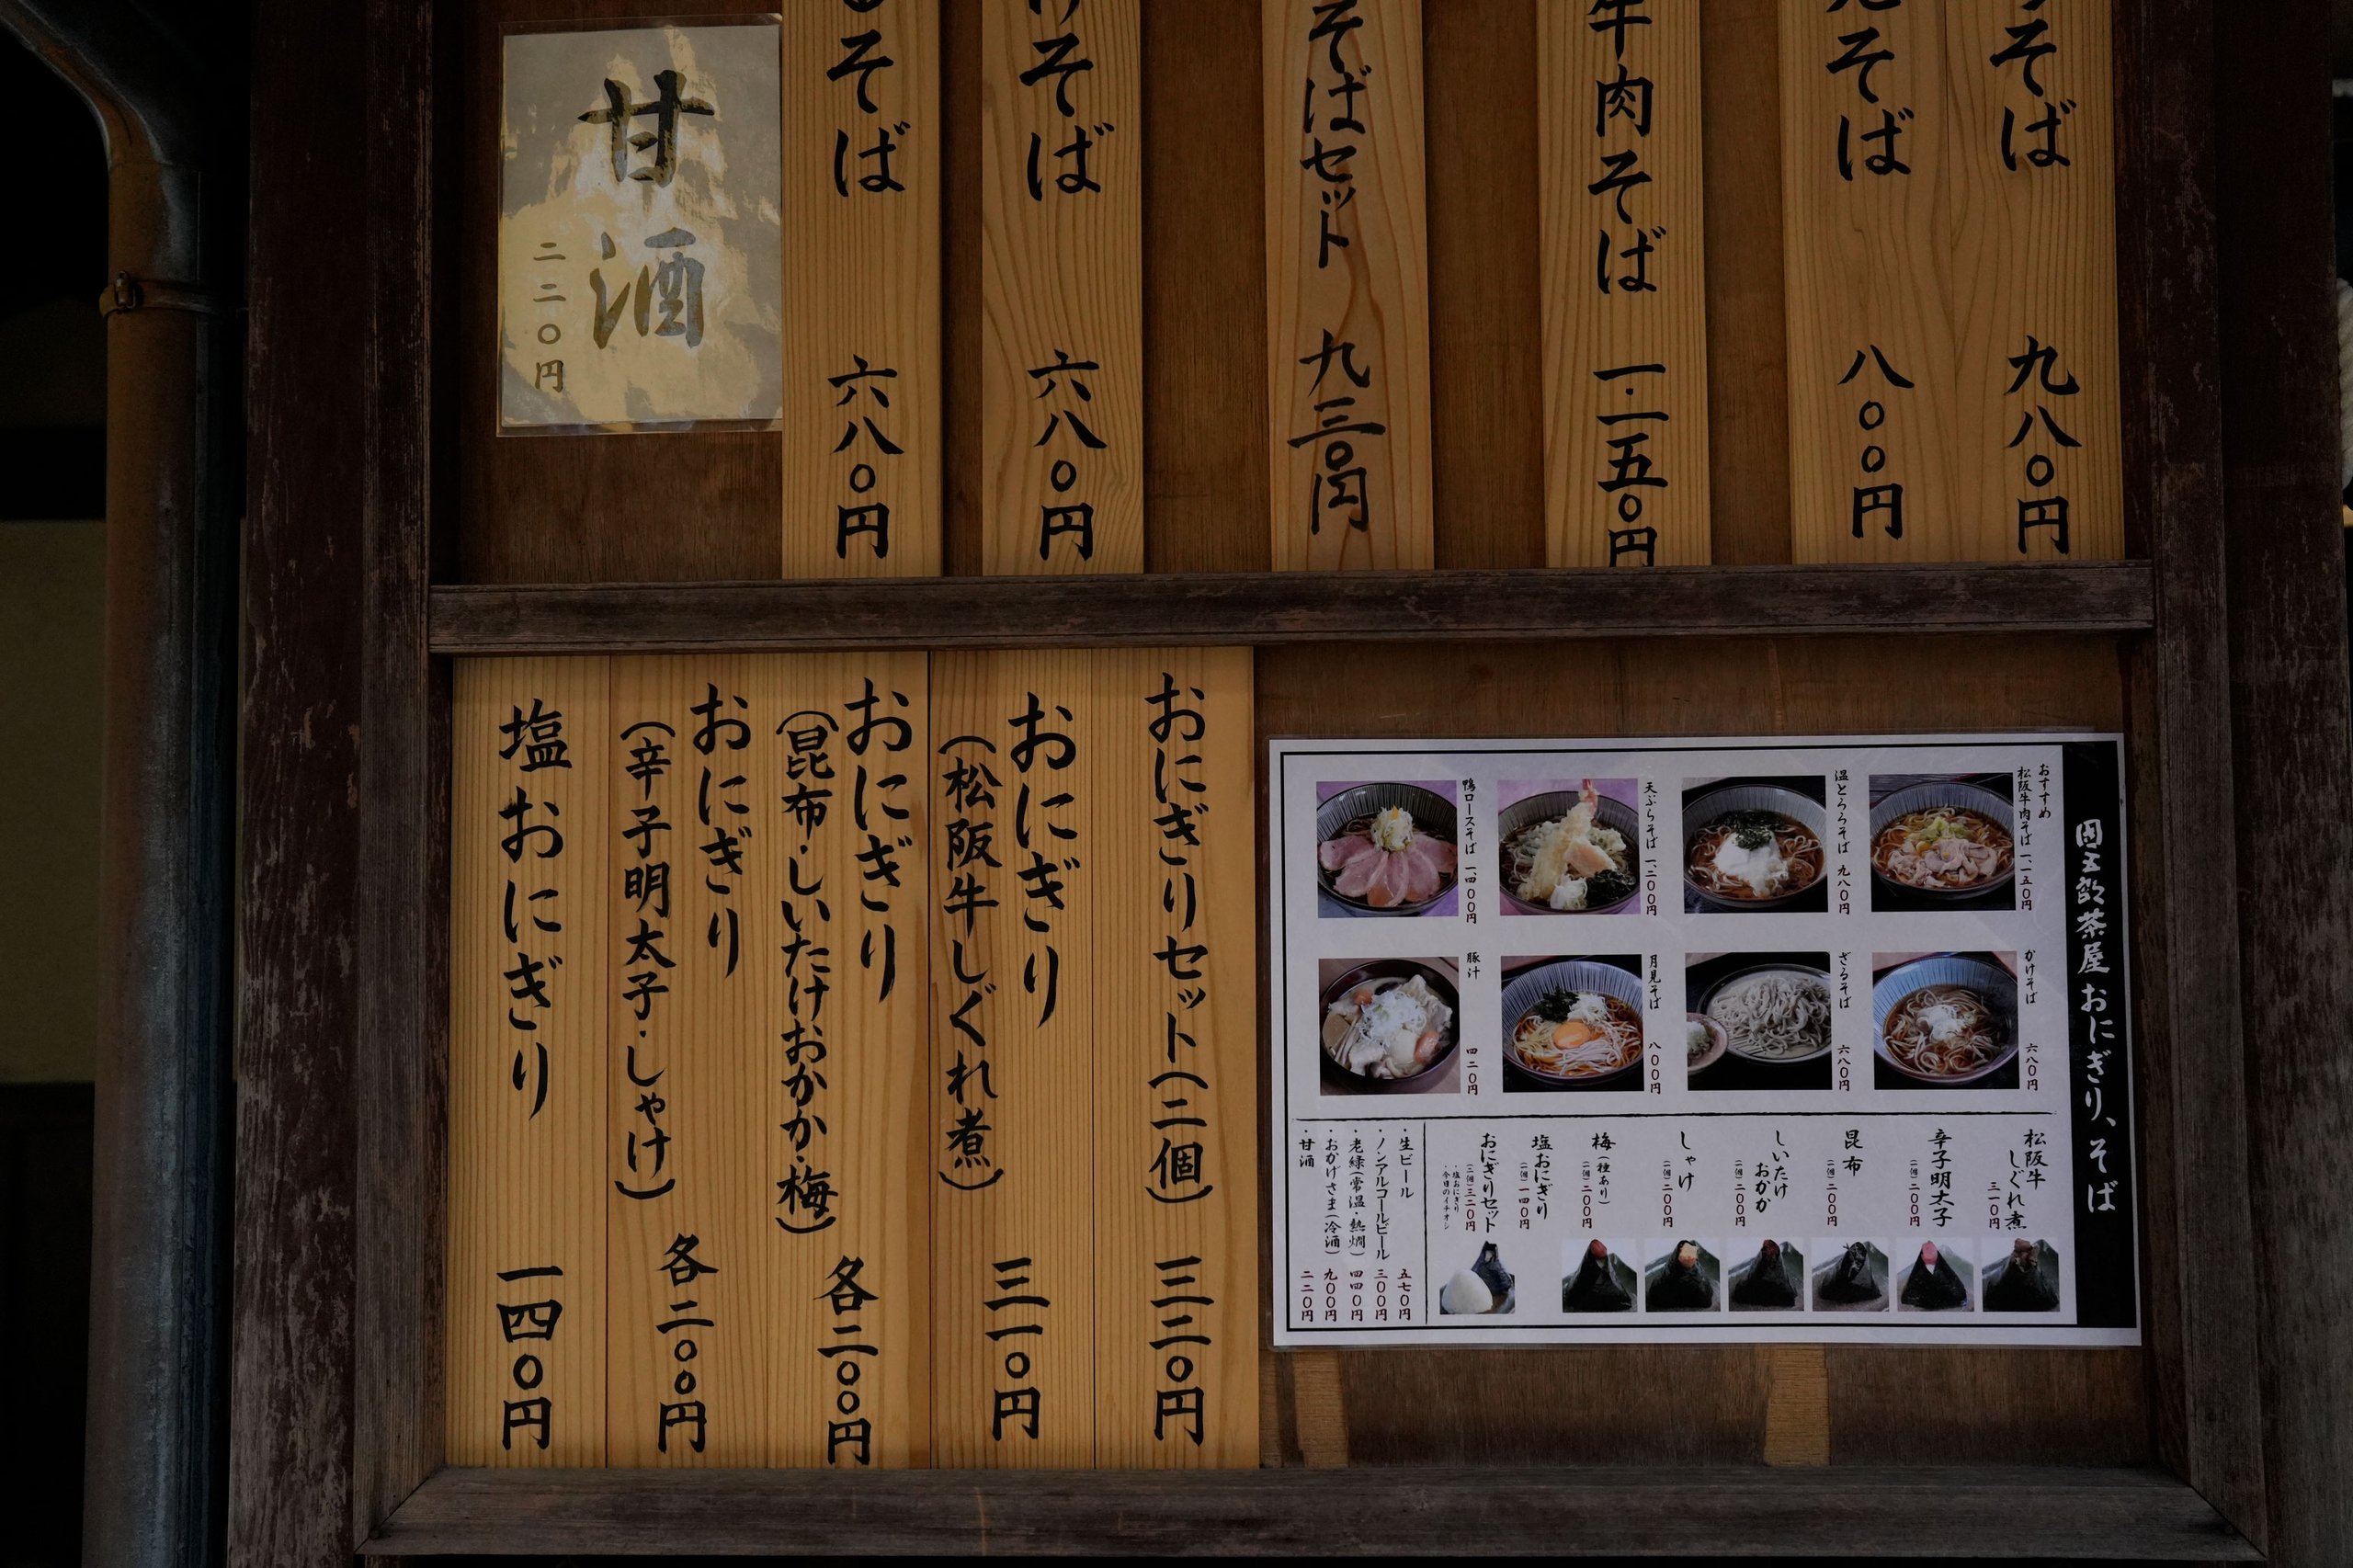 そば
九八〇円
そば
八〇〇円
牛肉そば
一・一五〇円
そばセット
九三〇円
けそば
六八〇円
そば
六八〇円
甘酒
二二〇円
おにぎりセット(二個)
三二〇円
おにぎり
(松阪牛しぐれ煮)
三一〇円
おにぎり
(昆布・しいたけおかか・梅)
各二〇〇円
おにぎり
(辛子明太子・しゃけ)
各二〇〇円
塩おにぎり
一四〇円
茶屋おにぎり、そば
おすすめ
松阪牛肉そば 一、一五〇円
温とろろそば 九八〇円
天ぷらそば 一、二〇〇円
鴨ロースそば 一、四〇〇円
かけそば 六八〇円
ざるそば 六八〇円
月見そば 八〇〇円
豚汁 四二〇円
松阪牛
しぐれ煮
三一〇円
辛子明太子
(一個)二〇〇円
昆布
(一個)二〇〇円
しいたけ
おかか
(一個)二〇〇円
しゃけ
(一個)二〇〇円
梅(種あり)
(一個)二〇〇円
塩おにぎり
(一個)一四〇円
おにぎりセット
(二個)三二〇円
・塩おにぎり
・今日のイチオシ
・生ビール 五七〇円
・ノンアルコールビール 三〇〇円
・老緑(常温・熱燗) 四四〇円
・おかげさま(冷酒) 九〇〇円
・甘酒 二二〇円